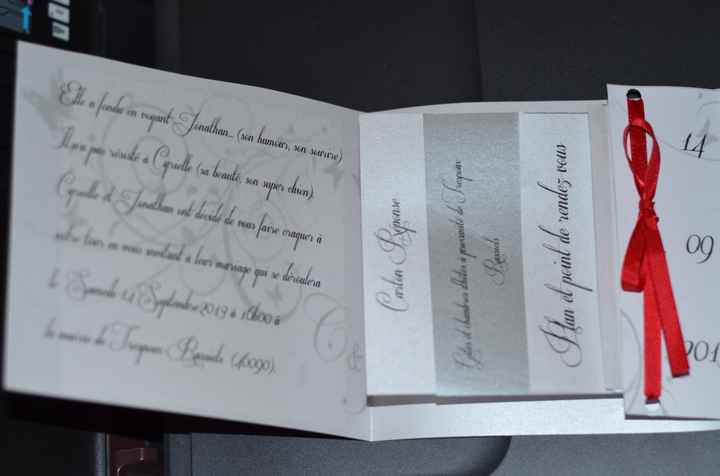 Elle a fondu en voyant Jonathan... (son humour, son sourire)
Il n'a pas résisté à Cyrielle (sa beauté, son super chien).
Cyrielle et Jonathan ont décidé de vous faire craquer à
votre tour en vous invitant à leur mariage qui se déroulera
le Samedi 14 Septembre 2013 à 16h00 à
la mairie de (40090).
Carton Réponse
Gîtes et chambres d'hôtes à proximité de
Plan et point de rendez vous
14
09
201